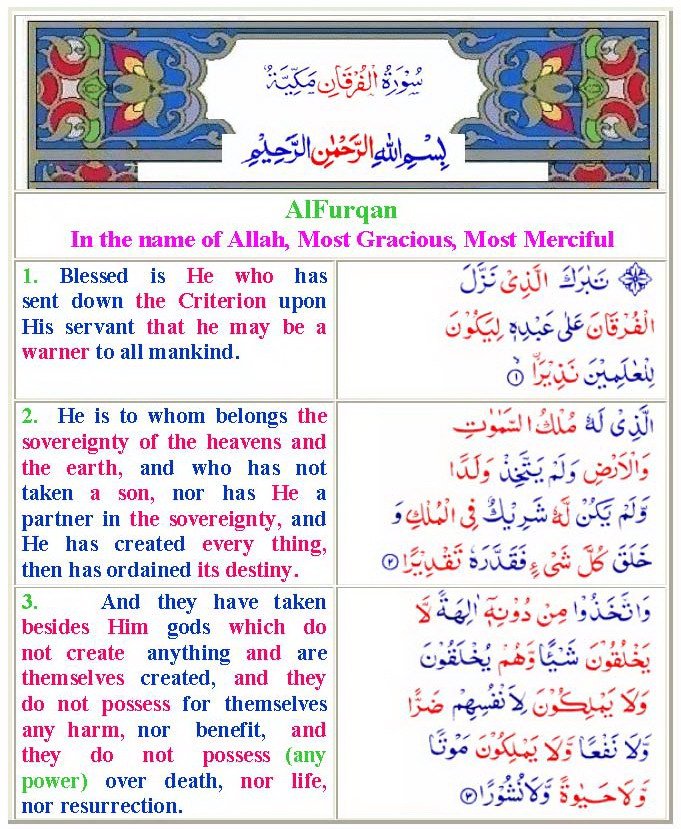 سُوْرَةُ الْفُرْقَانِ مَكِّيَّةٌ
بِسْمِ اللهِ الرَّحْمٰنِ الرَّحِيْمِ
AlFurqan
In the name of Allah, Most Gracious, Most Merciful
1. Blessed is He who has
sent down the Criterion upon
His servant that he may be a
warner to all mankind.
تَبٰرَكَ الَّذِىْ نَزَّلَ
الْفُرْقَانَ عَلٰى عَبْدِهٖ لِيَكُوْنَ
لِلْعٰلَمِيْنَ نَذِيْرًاۙ ﴿۱﴾
2. He is to whom belongs the
sovereignty of the heavens and
the earth, and who has not
taken a son, nor has He a
partner in the sovereignty, and
He has created every thing,
then has ordained its destiny.
الَّذِىْ لَهٗ مُلْكُ السَّمٰوٰتِ
وَالْاَرْضِ وَلَمْ يَتَّخِذْ وَلَدًا
وَّلَمْ يَكُنْ لَّهٗ شَرِيْكٌ فِى الْمُلْكِ وَ
خَلَقَ كُلَّ شَىْءٍ فَقَدَّرَهٗ تَقْدِيْرًا ﴿۲﴾
3. And they have taken
besides Him gods which do
not create anything and are
themselves created, and they
do not possess for themselves
any harm, nor benefit, and
they do not possess (any
power) over death, nor life,
nor resurrection.
وَاتَّخَذُوْا مِنْ دُوْنِهٖۤ اٰلِهَةً لَّا
يَخْلُقُوْنَ شَيْـًٔا وَّهُمْ يُخْلَقُوْنَ
وَلَا يَمْلِكُوْنَ لِاَنْفُسِهِمْ ضَرًّا
وَّلَا نَفْعًا وَّلَا يَمْلِكُوْنَ مَوْتًا
وَّلَا حَيٰوةً وَّلَا نُشُوْرًا ﴿۳﴾